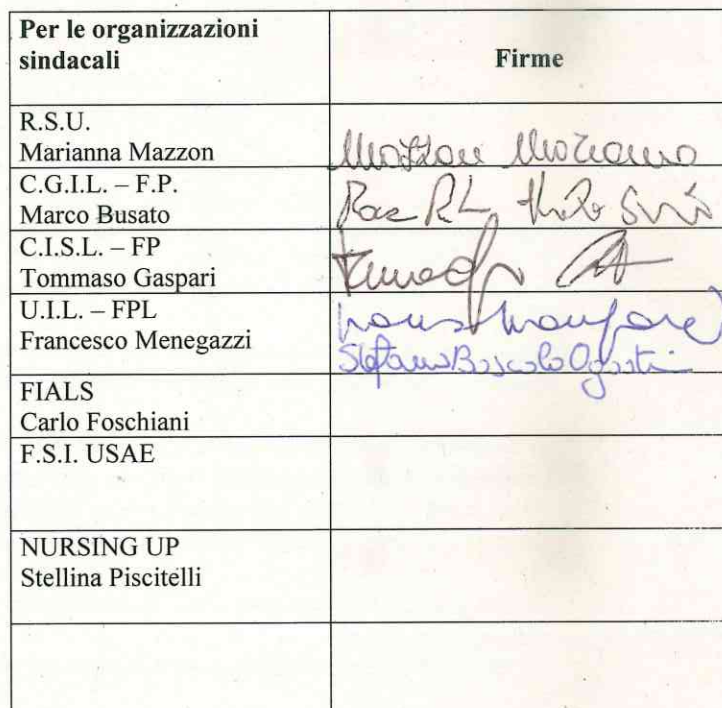 Per le organizzazioni
sindacali
Firme
R.S.U.
Marianna Mazzon
Mazzon Marianna
C.G.I.L. – F.P.
Marco Busato
C.I.S.L. – FP
Tommaso Gaspari
U.I.L. – FPL
Francesco Menegazzi
Stefano Boscolo Agostini
FIALS
Carlo Foschiani
F.S.I. USAE
NURSING UP
Stellina Piscitelli